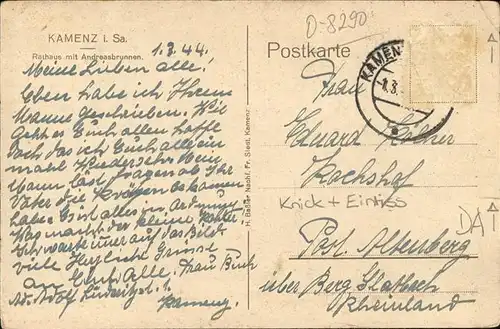 KAMENZ i. Sa.
Rathaus mit Andreasbrunnen.
1.3.44.
Meine Lieben alle!
Eben habe ich Ihrem
Manne geschrieben. Wie
geht es Euch allen hoffe
doch das ich Euch alle ein
mal Wiedersehe. Mein
Mann läst fragen ob Ihr
Vater die bekommen
habe. Es ist alles in Ordnung
Was macht der kleine
immer auf das Bild
viele Herzliche Grüsse
an Euch Alle. Frau
Adolf
Kamenz.
H. Basler Nachf. Fr. Siedl, Kamenz
D-8290
Postkarte
KAMENZ
1.3.
Frau
Eduard
Kochshof
Knick + Einriss
DA
Post. Altenberg
über Berg. Gladbach
Rheinland